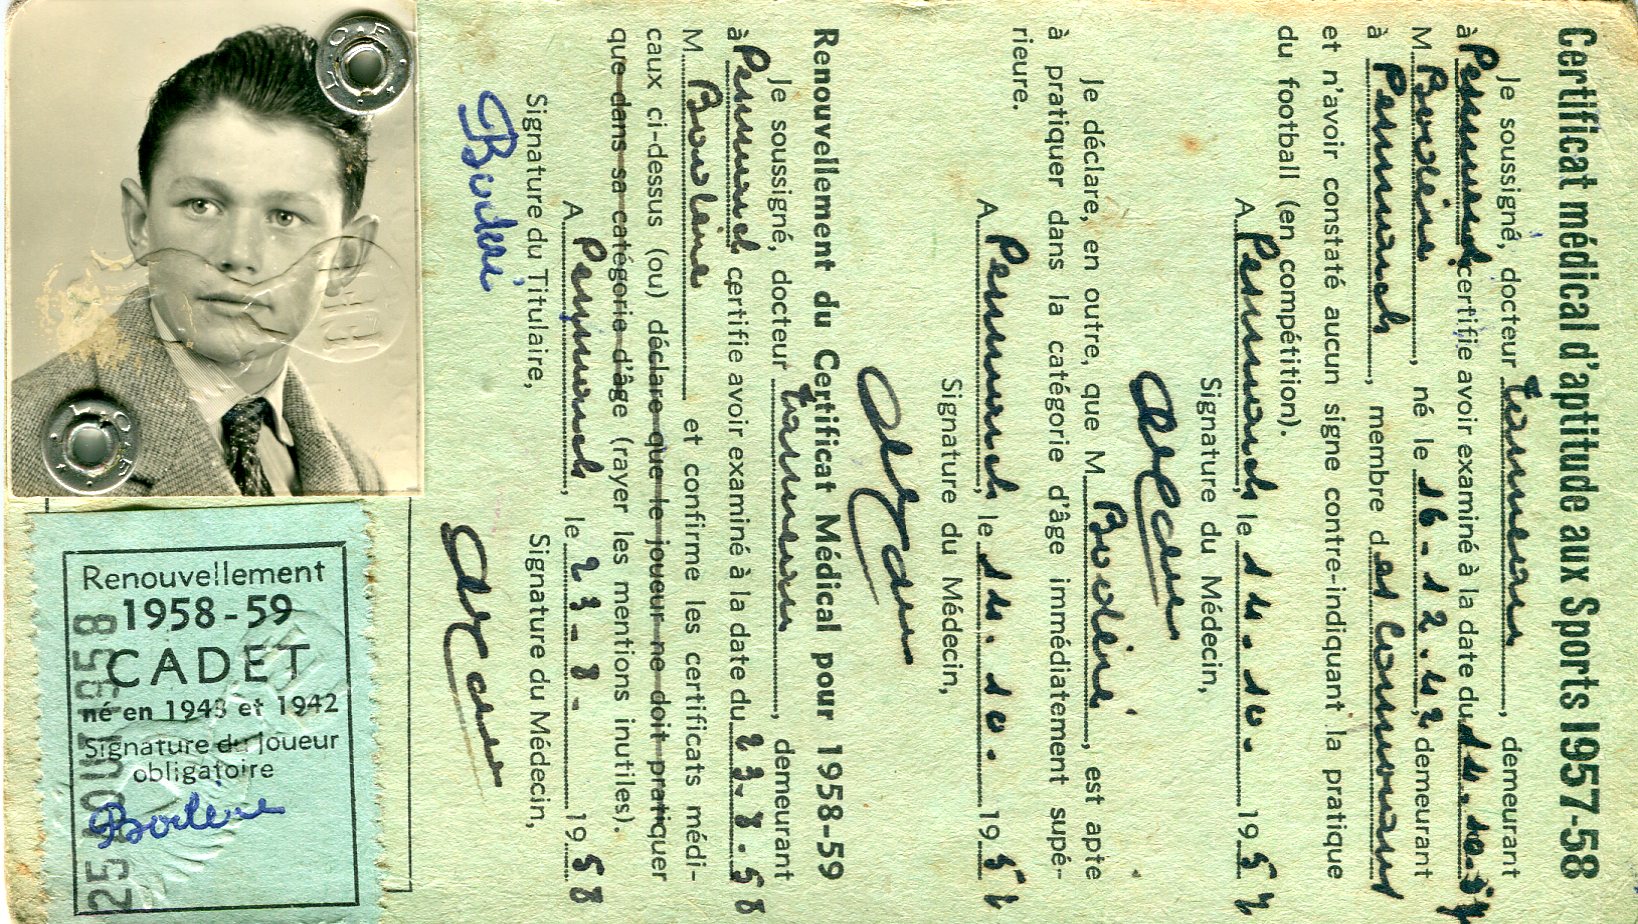 Certificat médical d'aptitude aux Sports 1957-58
Je soussigné, docteur Tanneau, demeurant
à Penmarch certifie avoir examiné à la date du 14.10.57
M. Bodéré, né le 16-12-42 demeurant
à Penmarch, membre des
et n'avoir constaté aucun signe contre-indiquant la pratique
du football (en compétition).
A Penmarch, le 14.10. 1957
Signature du Médecin,
Je déclare, en outre, que M. Bodéré, est apte
à pratiquer dans la catégorie d'âge immédiatement supé-
rieure.
A Penmarch, le 14.10. 1957
Signature du Médecin,
Renouvellement du Certificat Médical pour 1958-59
Je soussigné, docteur Tanneau, demeurant
à Penmarch certifie avoir examiné à la date du 23.8.58
M. Bodéré et confirme les certificats médi-
caux ci-dessus (ou) déclare que le joueur ne doit pratiquer
que dans sa catégorie d'âge (rayer les mentions inutiles).
A Penmarch, le 23-8- 1958
Signature du Titulaire, Signature du Médecin,
Bodéré
Renouvellement
1958-59
CADET
né en 1943 et 1942
Signature du joueur
obligatoire
Bodéré
25 AOUT 1958